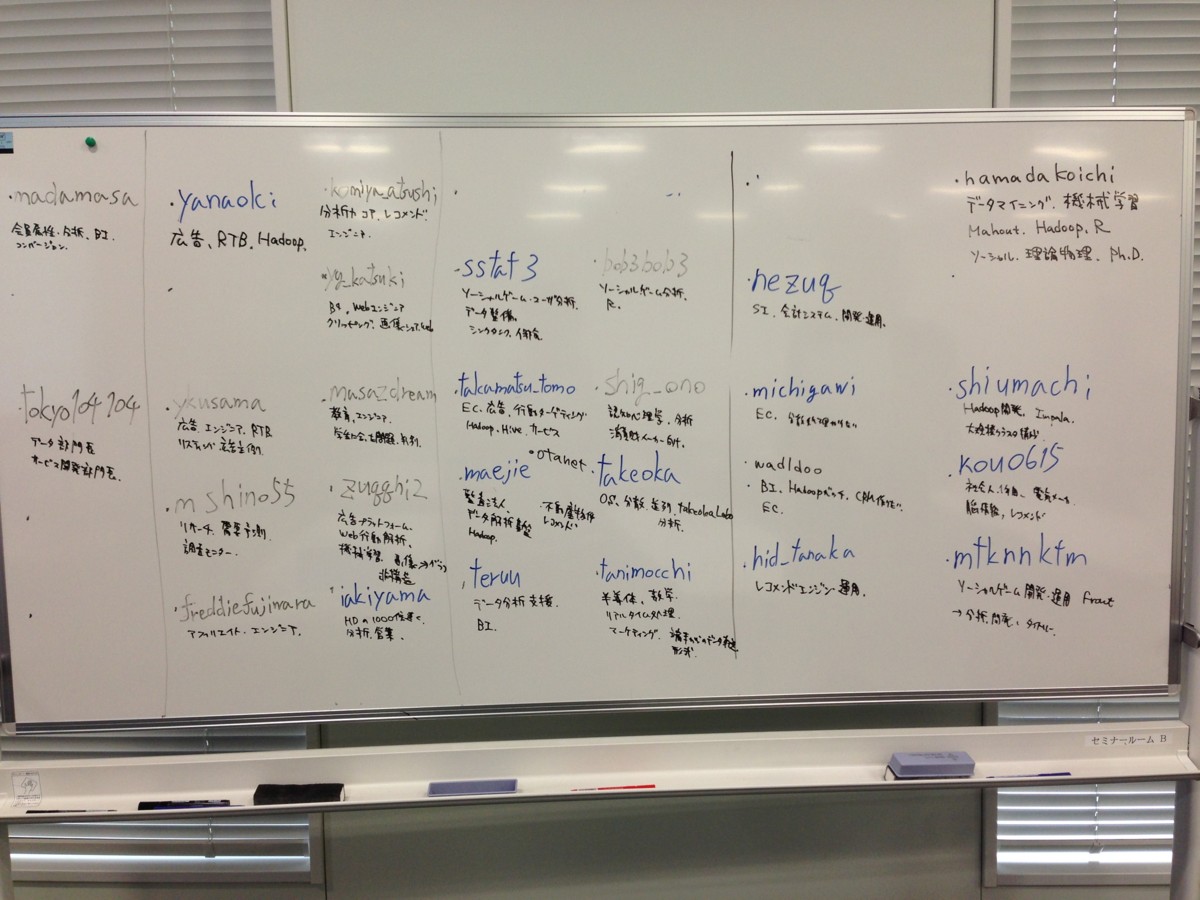 madamasa
会員属性・分析、BI.
コンバージョン.
tokyo104104
データ部門長
サービス開発部門長.
yanaoki
広告、RTB、Hadoop.
ykusama
広告エンジニア、RTB
リスティング広告
mshino55
リサーチ、需要予測
調査モニター.
freddiefujiwara
アフィリエイト・エンジニア.
komiya_atsushi
分析力コア、レコメンド.
エンジニア.
yy_katsuki
B4、Webエンジニア
クリッピング、画像シェアweb
masaz_dream
教育、エンジニア.
zuqqhi2
広告プラットフォーム、
Web行動解析、
機械学習
非構造
iakiyama
分析、営業、
sstat3
ソーシャルゲーム・ユーザ分析.
データ整備.
シンクタンク、
takamatsu_tomo
EC、広告、行動ターゲティング
Hadoop、Hive、サービス
maejie
監査法人、
データ解析
Hadoop.
otanet
不動産物件
レコメンド
teruu
データ分析支援.
BI.
bob3bob3
ソーシャルゲーム分析.
R.
shig_ono
認知心理学、分析
消費財メーカー
takeoka
OS、分散、並列、takeokaLabo
分析.
tanimocchi
半導体、数学.
リアルタイム処理.
マーケティング.
形式.
nezuq
SI、会計システム、開発・運用.
michigawi
EC.
wadldoo
BI、Hadoopバッチ、CRM
EC.
hid_tanaka
レコメンドエンジン運用.
hamadakoichi
データマイニング、機械学習
Mahout、Hadoop、R
ソーシャル、理論物理、Ph.D.
shiumachi
Hadoop開発、Impala.
大規模クラスタ構築
kou0615
社会人1年目、電気メーカ
脳体験、レコメンド
mtknnktm
ソーシャルゲーム開発・運用
→分析、開発、
セミナールーム B